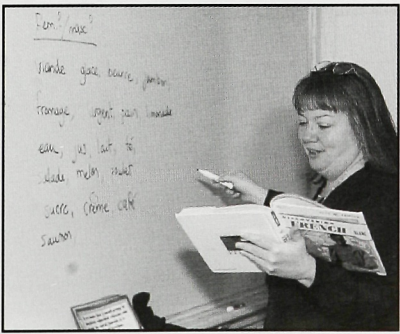 Fem?/masc?
viande glace beurre, jambon,
fromage, argent, pain, limonade
eau, jus, lait, thé,
salade, melon, poulet
sucre, crème, café
saumon
FRENCH